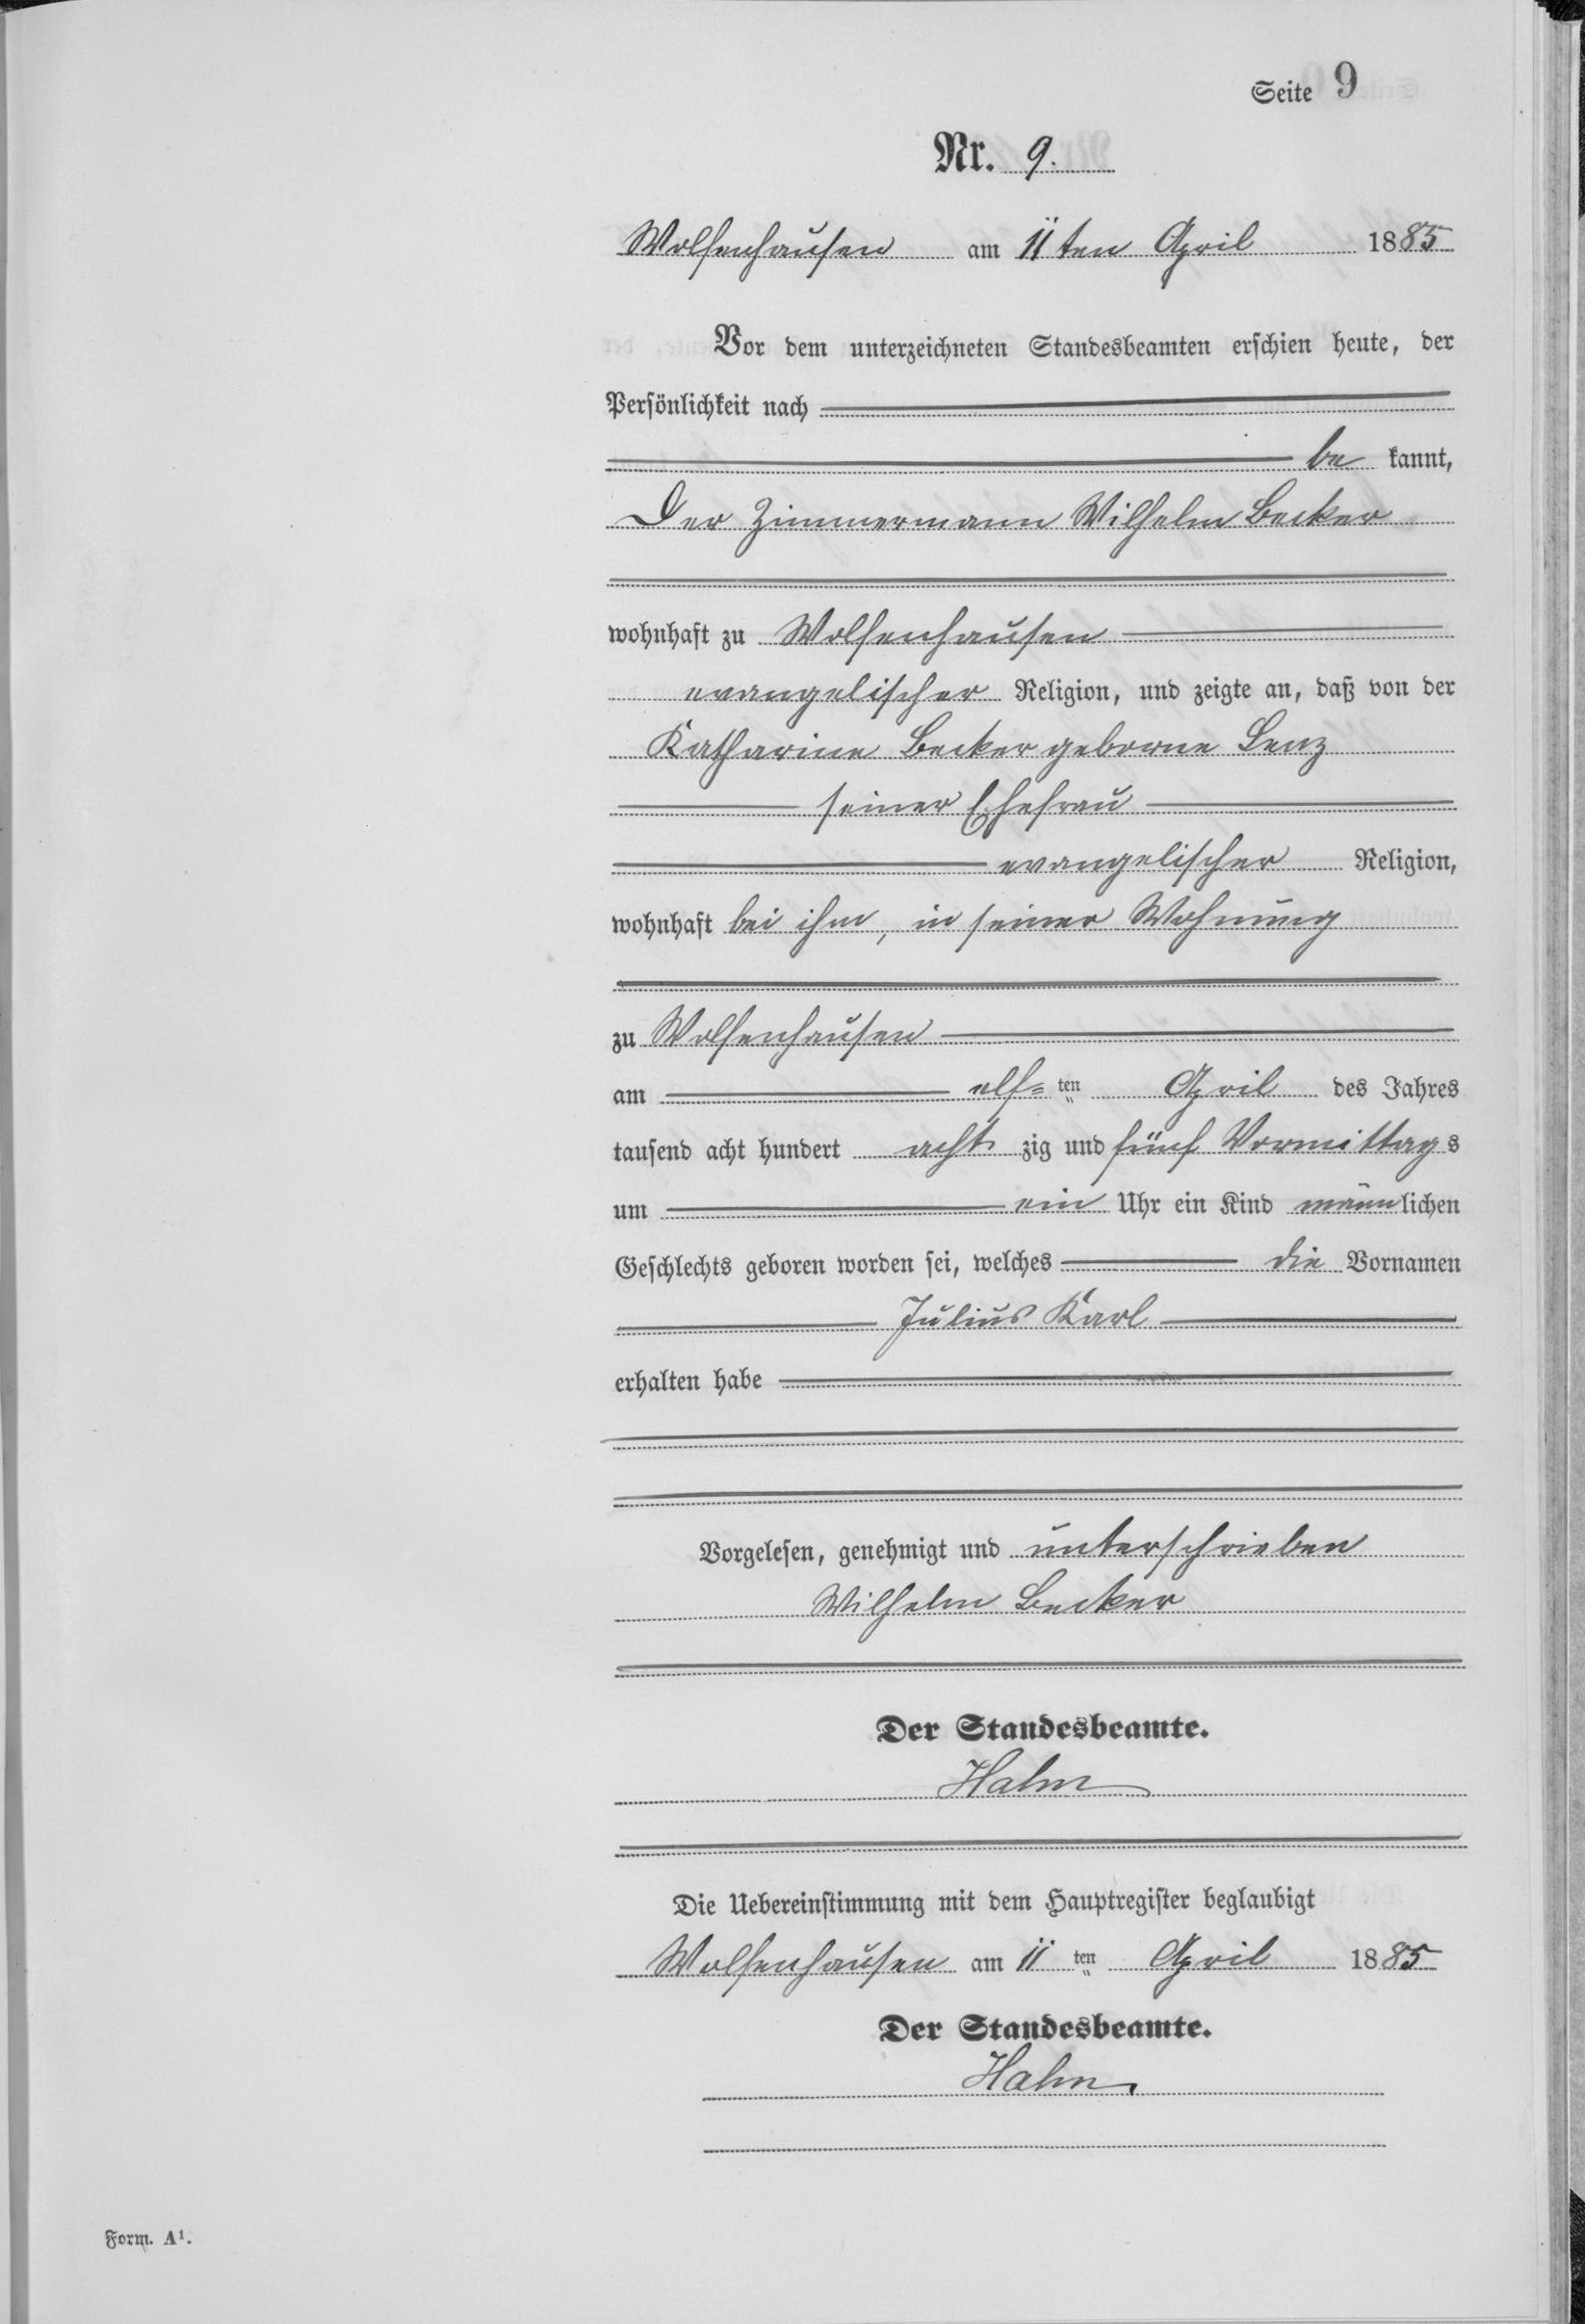 Seite 9
Nr. 9.
Wolfenhausen am 11ten April 1885
Vor dem unterzeichneten Standesbeamten erschien heute, der
Persönlichkeit nach
be kannt,
Der Zimmermann Wilhelm Becker
wohnhaft zu Wolfenhausen
evangelischer Religion, und zeigte an, daß von der
Katharine Becker geborne Lenz
seiner Ehefrau
evangelischer Religion,
wohnhaft bei ihm, in seiner Wohnung
zu Wolfenhausen
am elf=ten April des Jahres
tausend acht hundert acht zig und fünf Vormittags
um ein Uhr ein Kind männlichen
Geschlechts geboren worden sei, welches die Vornamen
Julius Karl
erhalten habe
Vorgelesen, genehmigt und unterschrieben
Wilhelm Becker
Der Standesbeamte.
Hahn
Die Uebereinstimmung mit dem Hauptregister beglaubigt
Wolfenhausen am 11ten April 1885
Der Standesbeamte.
Hahn
Form. A¹.